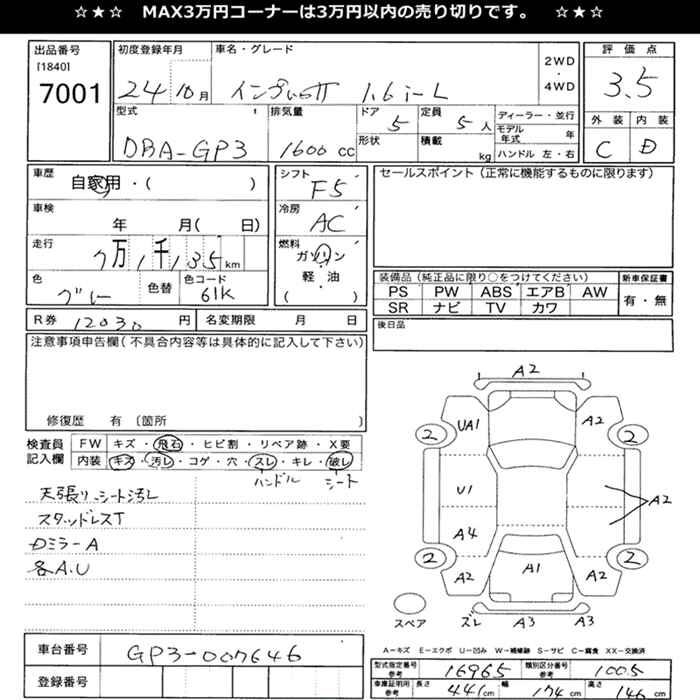 ☆★☆ MAX3万円コーナーは3万円以内の売り切りです。 ☆★☆
出品番号
[1840]
7001
初度登録年月
24 10月
車名・グレード
インプレッサ 1.6 i-L
2WD
・
4WD
評価点
3.5
外装 内装
C D
型式
DBA-GP3
排気量
1600 cc
ドア
5
形状
定員
5人
積載
kg
ディーラー・並行
モデル年式 年
ハンドル 左・右
車歴
自家用・( )
車検
年 月( 日)
走行
7万1千135km
色
グレー
色替
色コード
61K
シフト
F5
冷房
AC
燃料
ガソリン
・
軽・油
( )
セールスポイント(正常に機能するものに限ります)
装備品(純正品に限り○をつけてください)
PS PW ABS エアB AW
SR ナビ TV カワ
新車保証書
有・無
R券 12030円
名変期限 月 日
後日品
注意事項申告欄(不具合内容等は具体的に記入して下さい)
修復歴 有 〔箇所 〕
検査員記入欄
FW キズ・飛石・ヒビ割・リペア跡・X要
内装 キズ・汚レ・コゲ・穴・スレ・キレ・破レ
ハンドル シート
天張り、シート汚レ
スタッドレスT
Dミラー A
各A.U
A2
UA1 A2
2 2
U1
A2
A4
2 2
A2 A1 A2
スペア
ズレ A3 A3
A-キズ E-エクボ U-凹み W-補修跡 S-サビ C-腐食 XX-交換済
車台番号
GP3-007646
登録番号
型式指定番号
参考
16965
類別区分番号
参考
1005
車庫証明用
参考
長さ 441cm 幅 174cm 高さ 146cm